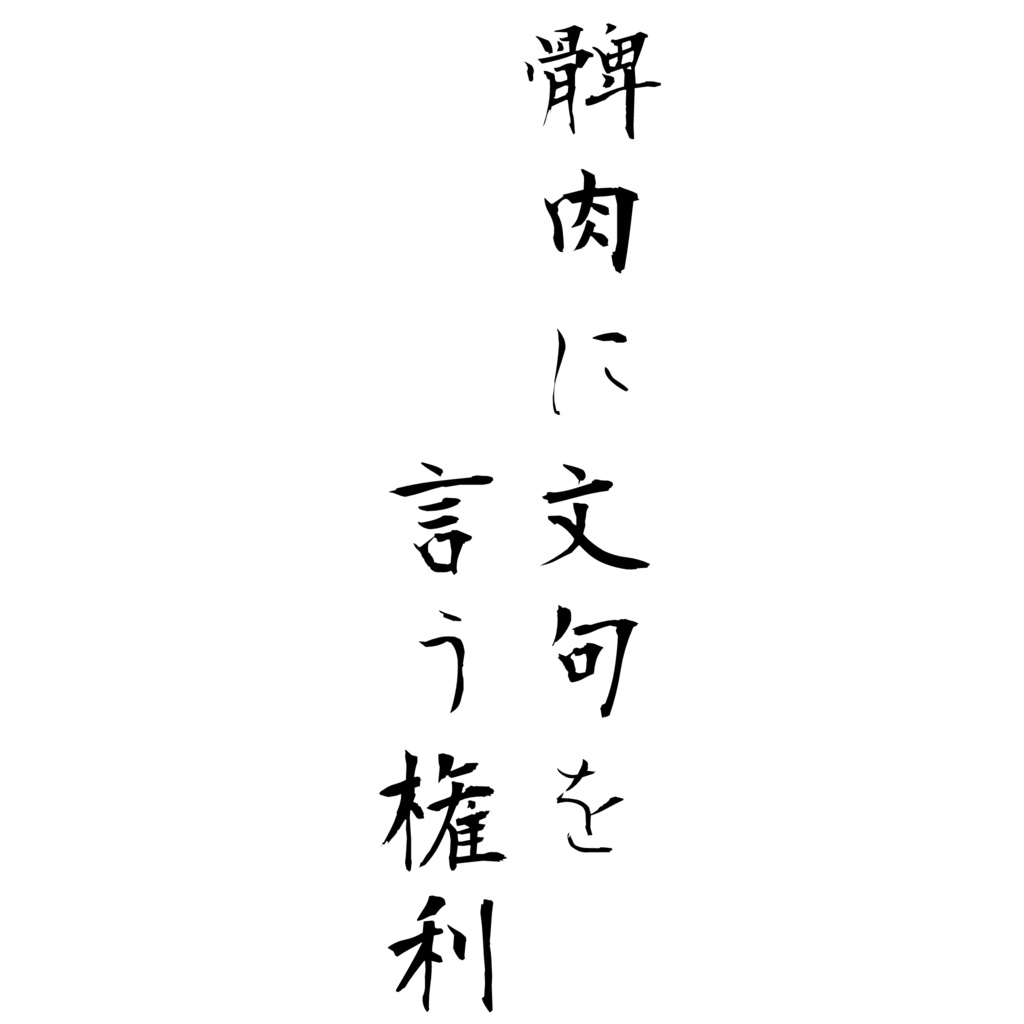 髀肉に文句を
言う権利